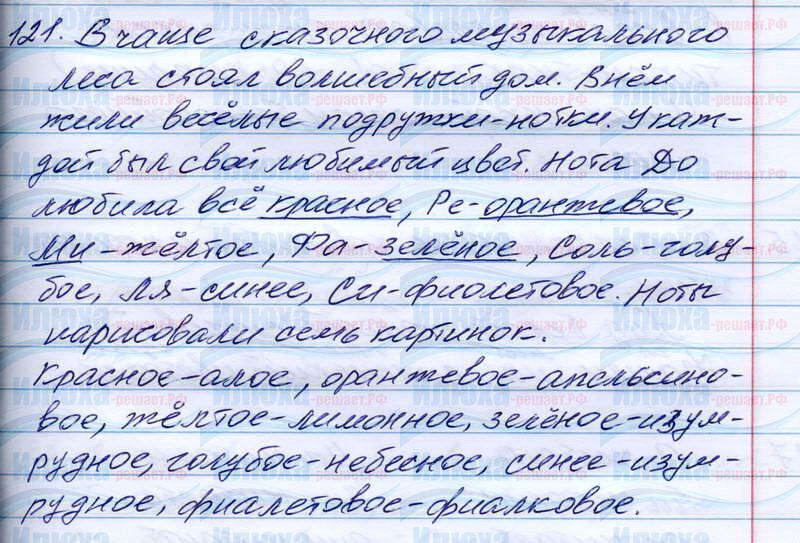 121. В чаще сказочного музыкального
леса стоял волшебный дом. В нём
жили весёлые подружки-нотки. У каж-
дой был свой любимый цвет. Нота До
любила всё красное, Ре-оранжевое,
Ми-жёлтое, Фа-зелёное, Соль-голу-
бое, Ля-синее, Си-фиолетовое. Ноты
нарисовали семь картинок.
Красное-алое, оранжевое-апельсино-
вое, жёлтое-лимонное, зелёное-изум-
рудное, голубое-небесное, синее-изум-
рудное, фиалетовое-фиалковое.